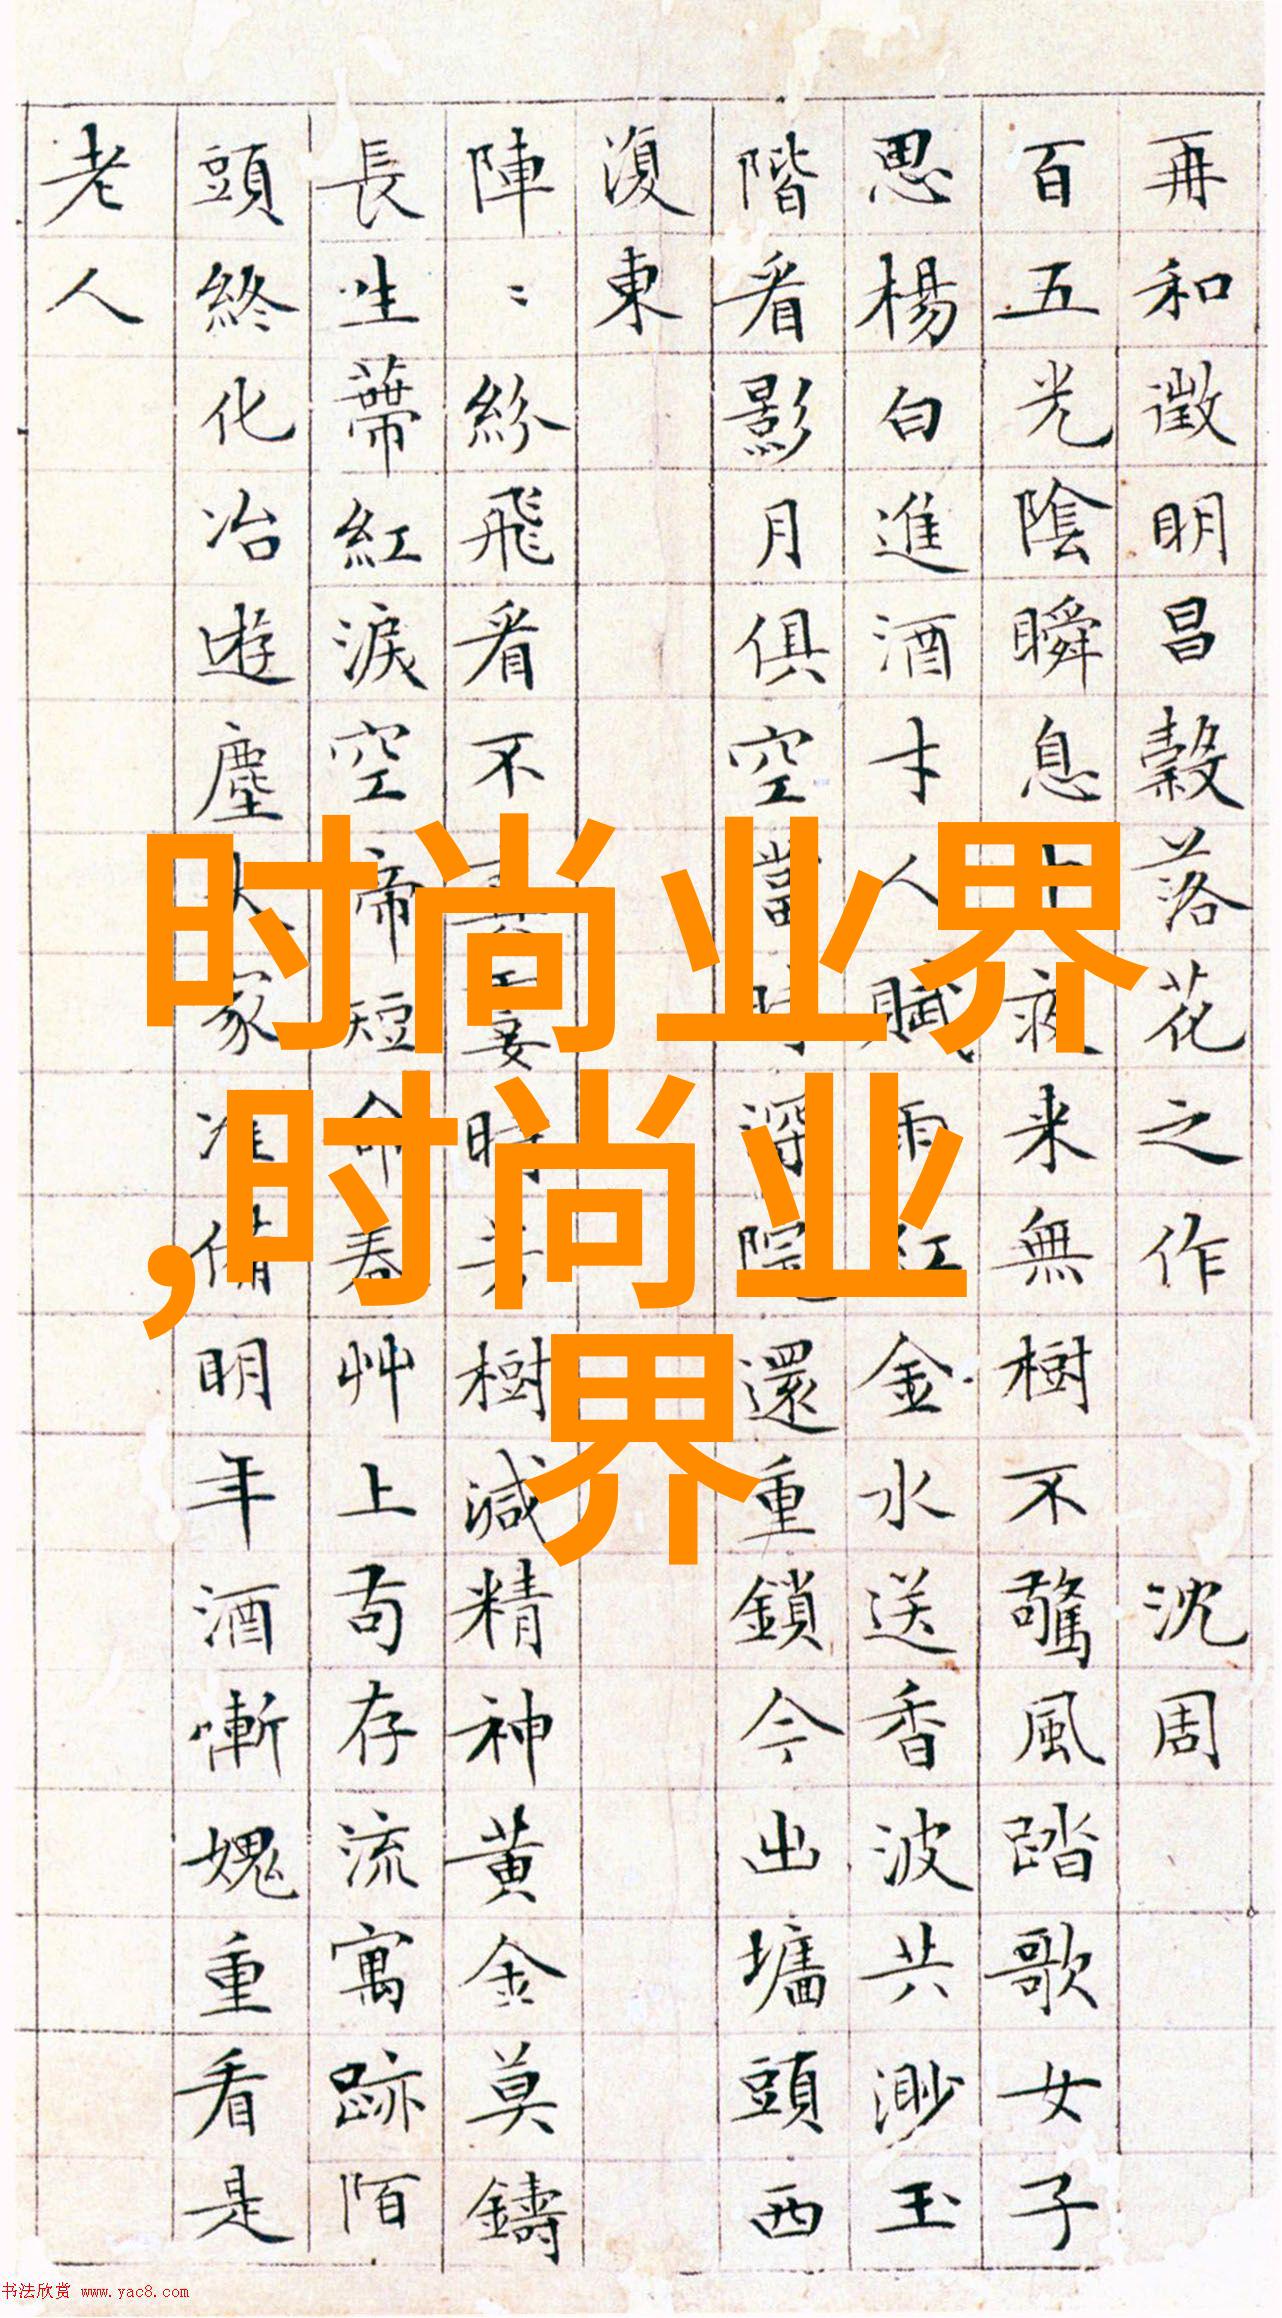 再和徵明昌穀落花之作 沈周
百五光陰瞬息中夜来無樹不驚風踏歌女子
思楊白進酒才人賦雨紅金水送香波共渺玉
階看影月俱空當時深院還重鎖今出墻頭西
復東
陣〻紛飛看不真霎時芳樹減精神黃金莫鑄
長生蔕紅淚空啼短命春艸上苟存流寓跡陌
頭終化冶遊塵大家准備明年酒慚媿重看是
老人
时尚业界
,时尚业
界
书法欣赏 www.yac8.com